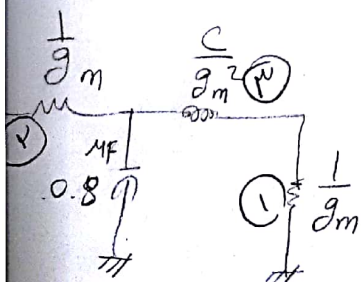 1/gm
C/gm²
۳
۲
MF
0.8
۱
1/gm